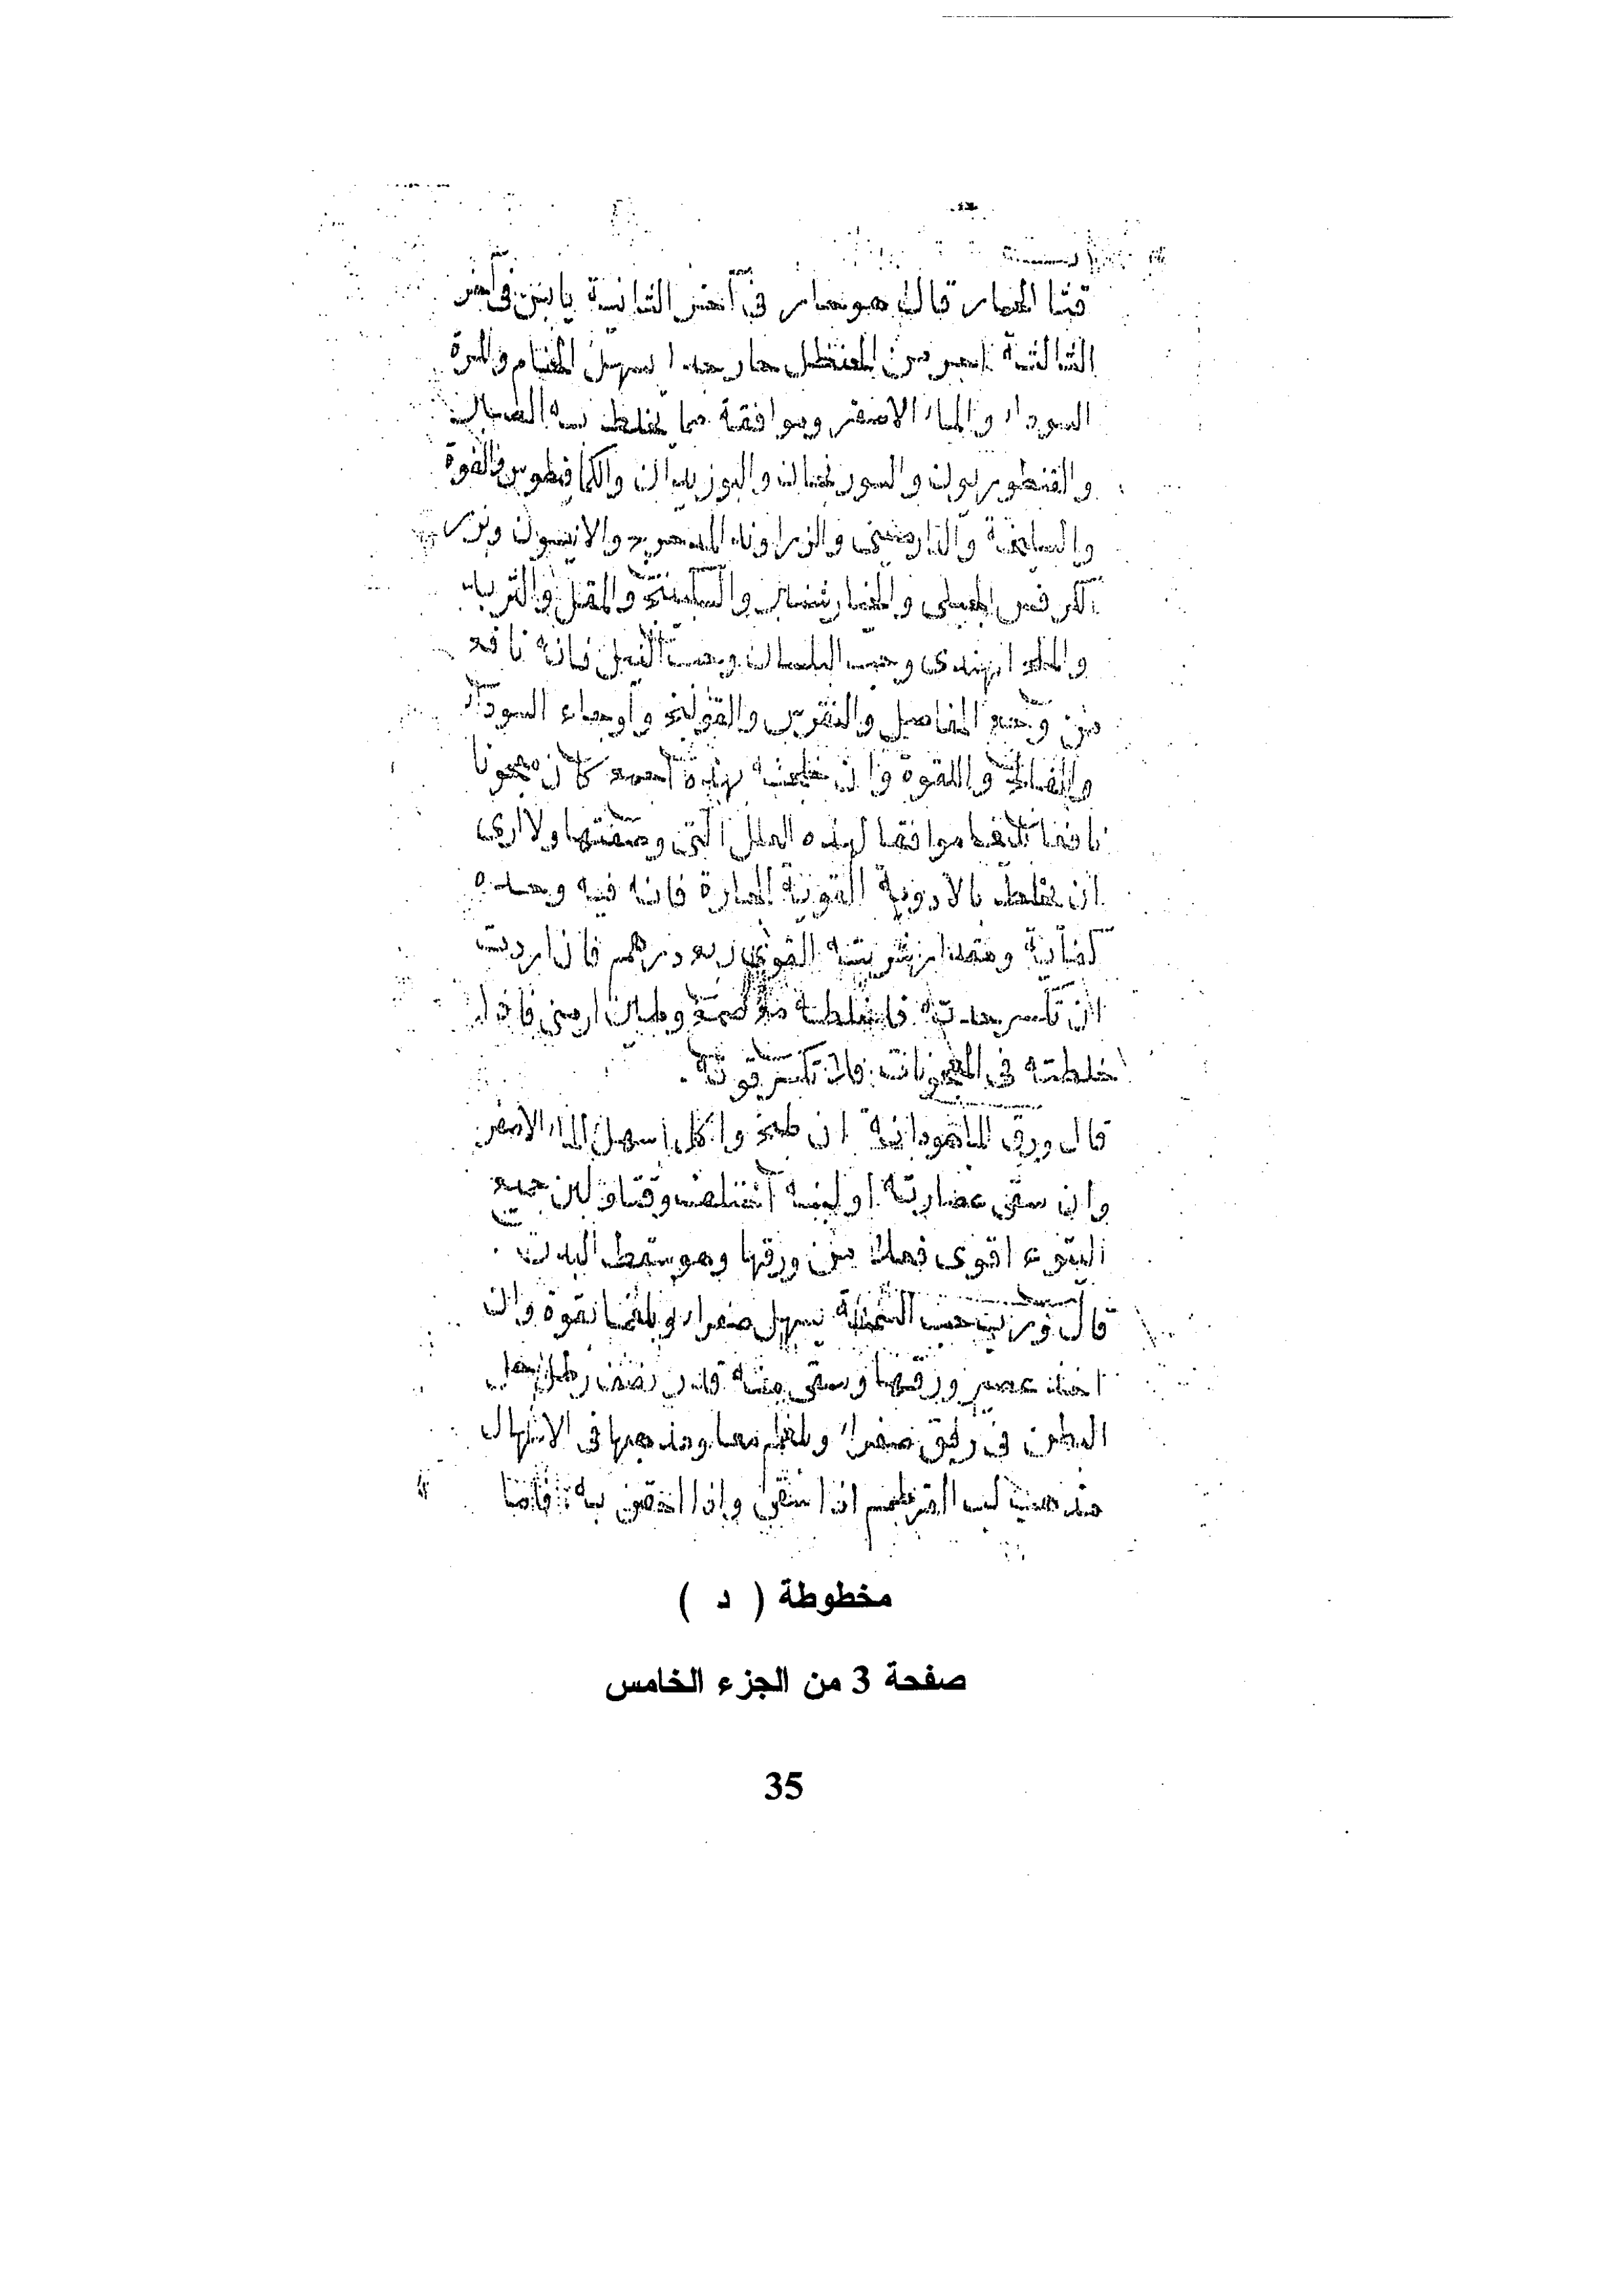 قثا الحمار قال هو حار في آخر الثانية يابس في آخر
الثالثة من الحنظل حار جدا يسهل البلغم والمرة
السوداء والماء الاصفر وموافقة ما يخلط به الصبر
والقنطوريون والسورنجان والبوزيدان والكمافيطوس والفوة
والسليخة والدارصيني والزراوند المدحرج والانيسون وبزر
الكرفس الجبلي والخيارشنبر والسكبينج والمقل والتربد
والملح الهندى وحب البلسان وحب النيل فانه نافع
من وجع المفاصل والنقرس والقولنج وأوجاع السوداء
والفالج واللقوة وان خلطته بهذه أجمع كان معجونا
نافعا موافقا لهذه العلل التي وصفتها ولا ارى
ان يخلط بالادوية القوية الحارة فانه فيه وحده
كفاية ومقدار شربته القوي ربع درهم فان اردت
ان تكسر حدته فاخلطه مع صمغ وطين ارمني فاذا
خلطته في المعجونات فلا تكسر قوته.
قال ورق الماهودانة ان طبخ واكل اسهل الماء الاصفر
وان سقى عصارته او لبنه وقتا ولبن جميع
اليتوع اقوى فعلا من ورقها وهو يسقط البدن
قال يسهل صفراء وبلغما بقوة وان
اخذ عصير ورقها وسقى منه قدر نصف رطل
البطن في رفق صفراء وبلغم معا ومذهبها في الاسهال
مذهب لب القرطم اذا سقى واذا احتقن به فاما
مخطوطة ( د )
صفحة 3 من الجزء الخامس
35